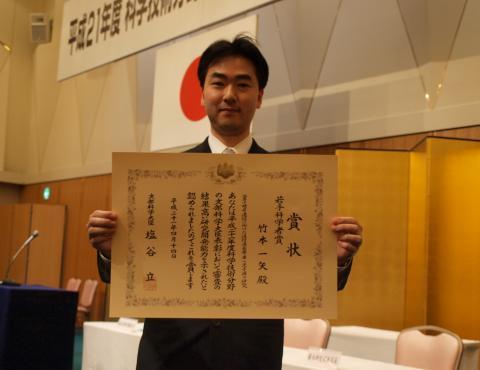 平成21年度 科学技術分
賞状
若手科学者賞
竹本一矢 殿
あなたは平成二十一年度科学技術分野
の文部科学大臣表彰において審査の
結果高い研究開発能力を示されたと
認められましたのでこれを賞します
平成二十一年四月十四日
文部科学大臣 塩谷 立